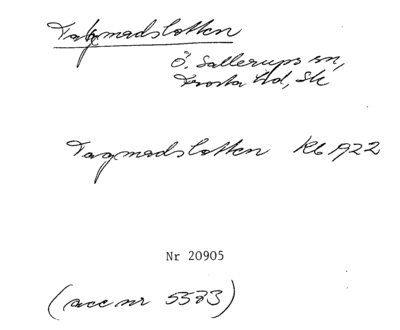 Tagmadslotten
Ö. Sallerups sn,
Frosta hd, Sk
Tagmadslotten Kb 1922
Nr 20905
(acc nr 5583)